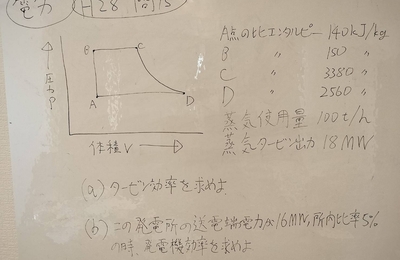 電力 H28 問15
A点の比エンタルピー 140kJ/kg
B 〃 150 〃
C 〃 3380 〃
D 〃 2560 〃
蒸気使用量 100t/h
蒸気タービン出力 18MW
圧力P
B
C
A
D
体積V
(a) タービン効率を求めよ
(b) この発電所の送電端電力が16MW,所内比率5%
の時、発電機効率を求めよ